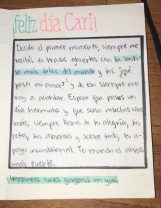 ¡feliz día Cari!
Desde el primer momento, siempre me
recibís de brazos abiertos con la sonri-
sa más dulce del mundo y tus "¿qué
pasó mi amor?" y de eso siempre me
voy a acordar. Espero que pases un
día hermoso y que sean muchos años
más, siempre llenos de tu alegría, tus
retos, tus abrazos y sobre todo, tu a-
poyo incondicional. Te mando el abrazo
más fuerte.
happiness looks gorgeous on you